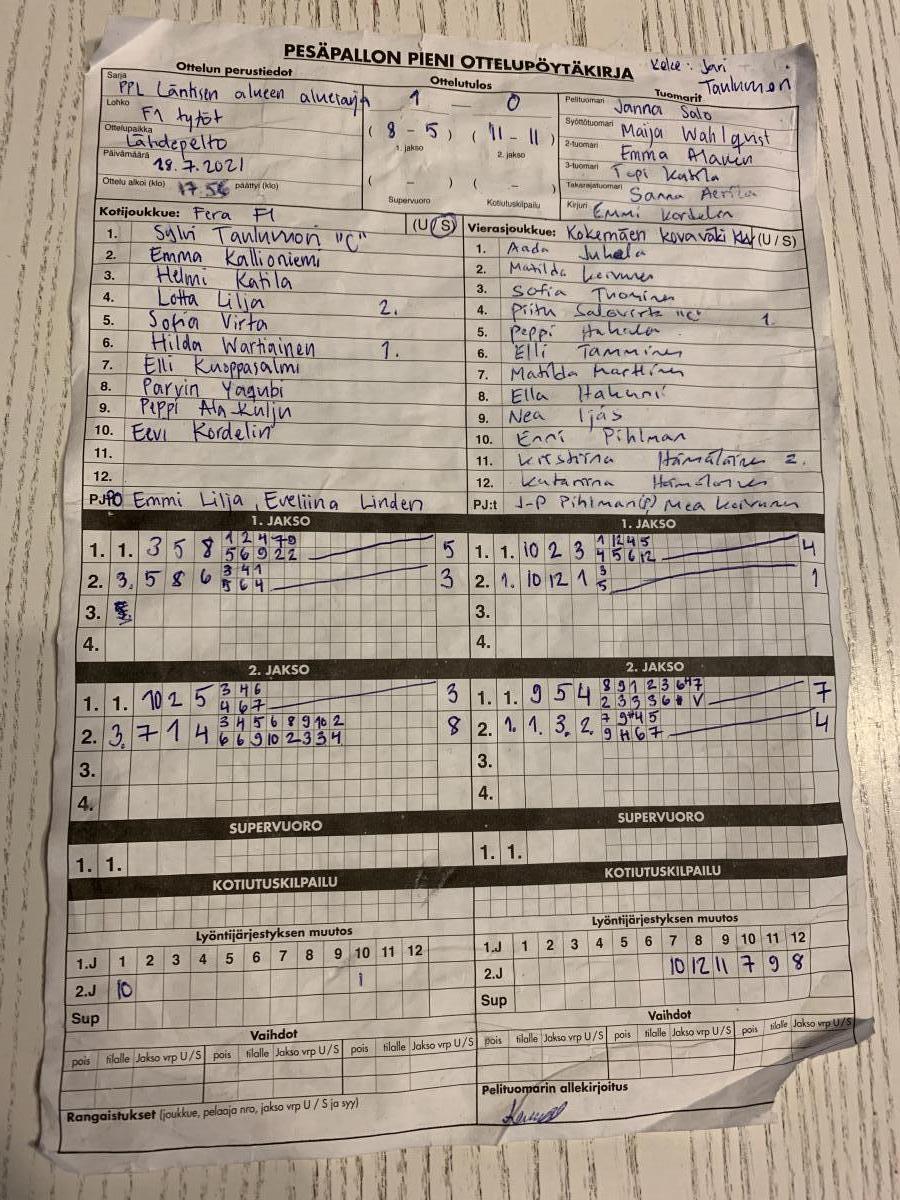 PESÄPALLON PIENI OTTELUPÖYTÄKIRJA
Jari
Taulumon
Ottelun perustiedot
Ottelutulos
Tuomarit
Sarja PPL Läntisen alueen
Lohko F1 tytöt
Ottelupaikka Lähdepelto
Päivämäärä 28.7.2021
Ottelu alkoi (klo) 17.56 päättyi (klo)
1 — 0
( 8 - 5 ) ( 11 - 11 )
1. jakso 2. jakso
( - ) ( - )
Supervuoro Kotiutuskilpailu
Pelituomari Janna Salo
Syöttötuomari Maija Wahlqvist
2-tuomari Emma Alanen
3-tuomari Topi Katila
Takarajatuomari Sanna Aerila
Kirjuri Emmi Kordelin
Kotijoukkue: Fera F1 (U/S)
1. Sylvi Taulumon "C"
2. Emma Kallioniemi
3. Helmi Katila
4. Lotta Lilja 2.
5. Sofia Virta
6. Hilda Wartiainen 1.
7. Elli Kuoppasalmi
8. Parvin Yaqubi
9. Peppi Ala-Kulju
10. Eevi Kordelin
11.
12.
PJ: Emmi Lilja, Eveliina Linden
Vierasjoukkue: Kokemäen kovaväki (U/S)
1. Aada Juhela
2. Matilda Keivunen
3. Sofia Tuominen
4. Piitu Salovirta "C" 1.
5. Peppi Hakala
6. Elli Tamminen
7. Matilda Marttinen
8. Ella Hakuni
9. Nea Ijäs
10. Enni Pihlman
11. Kristiina Hämäläinen 2.
12. Katariina Hämäläinen
PJ:t J-P Pihlman(P) Mea Keivunen
1. JAKSO
1. 1. 3 5 8 1 2 4 7 9 5
5 6 9 2 2
2. 3. 5 8 6 3 4 1 3
5 6 4
3.
4.
1. JAKSO
1. 1. 10 2 3 1 12 4 5 4
4 5 6 12
2. 1. 10 12 1 3 1
5
3.
4.
2. JAKSO
1. 1. 10 2 5 3 4 6 3
4 6 7
2. 3. 7 1 4 3 4 5 6 8 9 10 2 8
6 6 9 10 2 3 3 4
3.
4.
2. JAKSO
1. 1. 9 5 4 8 9 1 2 3 6 7 7
2 3 3 3 6 V
2. 1. 1. 3. 2. 7 9 4 5 4
9 11 6 7
3.
4.
SUPERVUORO
1. 1.
SUPERVUORO
1. 1.
KOTIUTUSKILPAILU
KOTIUTUSKILPAILU
Lyöntijärjestyksen muutos
1.J 1 2 3 4 5 6 7 8 9 10 11 12
2.J 10 1
Sup
Lyöntijärjestyksen muutos
1.J 1 2 3 4 5 6 7 8 9 10 11 12
2.J 10 12 11 7 9 8
Sup
Vaihdot
pois tilalle Jakso vrp U/S pois tilalle Jakso vrp U/S pois tilalle Jakso vrp U/S
Vaihdot
pois tilalle Jakso vrp U/S pois tilalle Jakso vrp U/S pois tilalle Jakso vrp U/S
Rangaistukset (joukkue, pelaaja nro, jakso vrp U / S ja syy)
Pelituomarin allekirjoitus